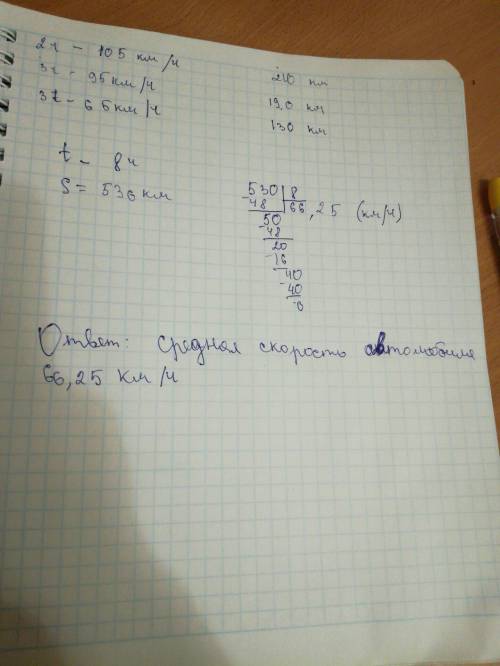 2ч - 105 км/ч 210 км
3ч - 95 км/ч 190 км
3ч - 65 км/ч 130 км
t - 8ч
S = 536 км
530 | 8
-48 | 66,25 (км/ч)
50
-48
20
-16
40
-40
0
Ответ: средная скорость автомобиля
66,25 км/ч